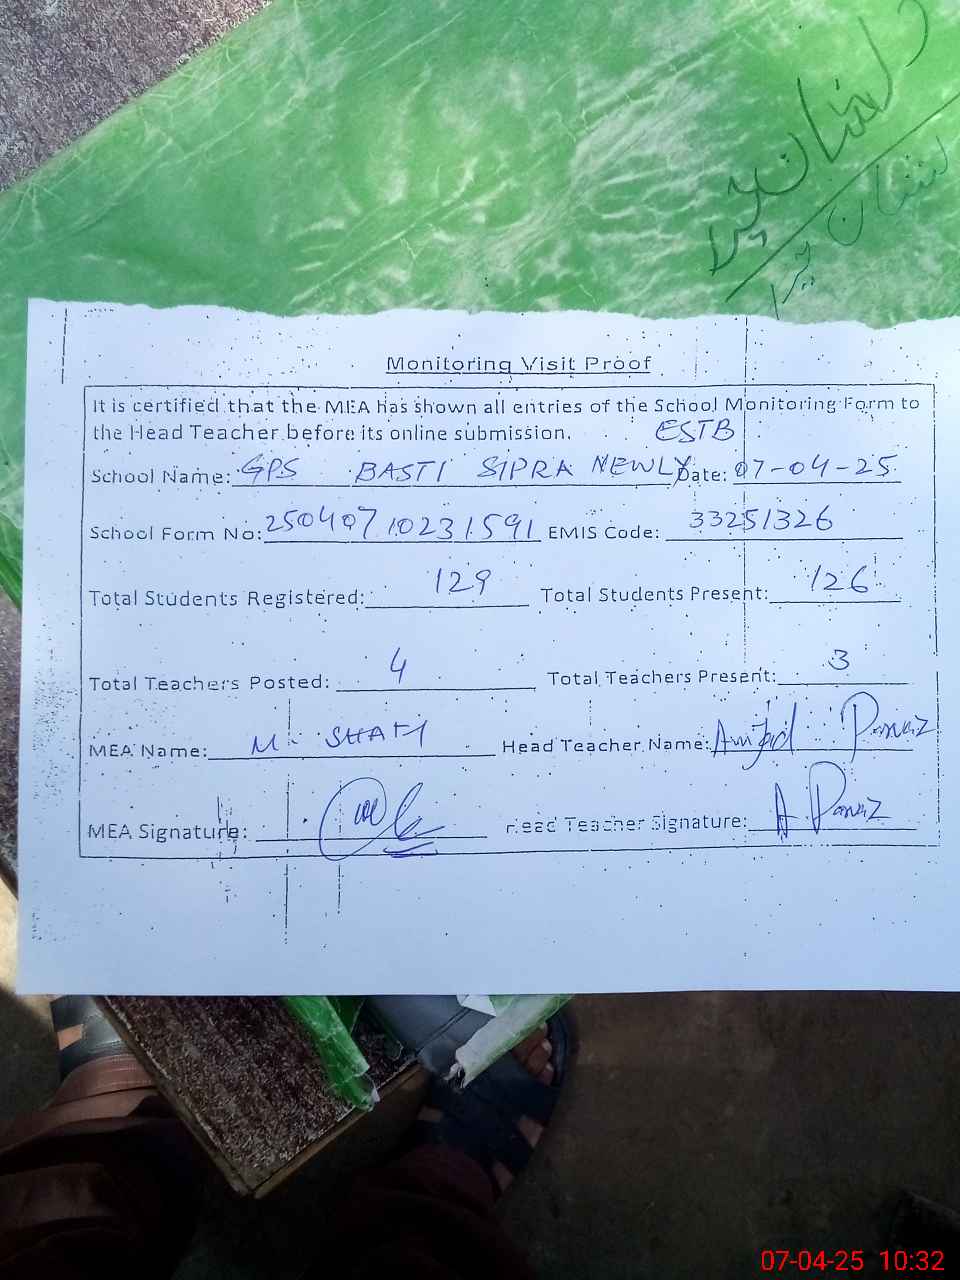 Monitoring Visit Proof
It is certified that the MEA has shown all entries of the School Monitoring Form to
the Head Teacher before its online submission. ESTB
School Name: GPS BASTI SIPRA NEWLY Date: 07-04-25
School Form No: 25040710231591 EMIS Code: 33251326
Total Students Registered: 129 Total Students Present: 126
Total Teachers Posted: 4 Total Teachers Present: 3
MEA Name: M. SHAFI Head Teacher Name: Amjad Parvaiz
MEA Signature: Head Teacher Signature: A Parvaiz
07-04-25 10:32